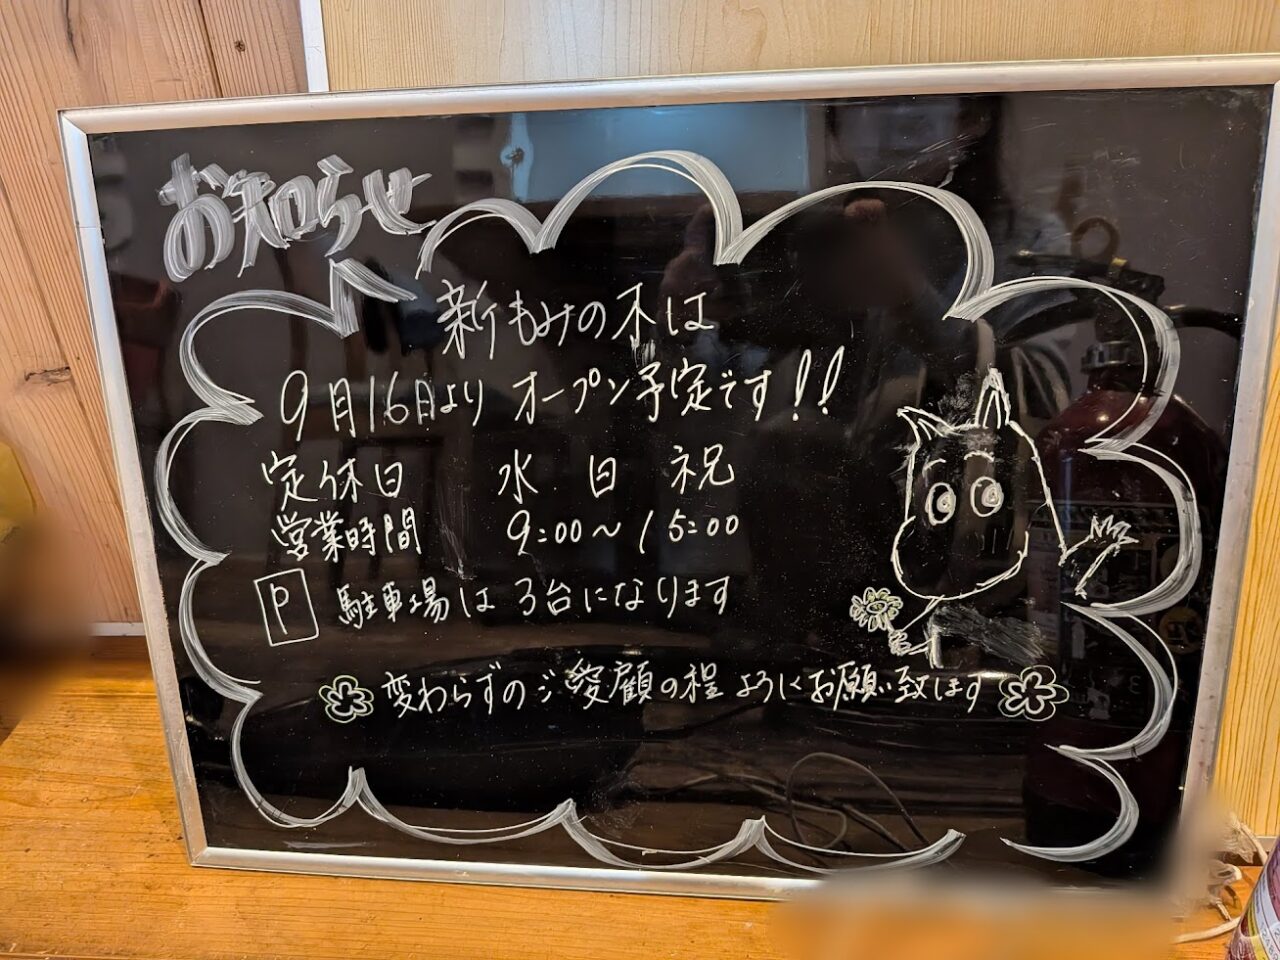 お知らせ
新もみの木は
9月16日より オープン予定です!!
定休日 水 日 祝
営業時間 9:00~15:00
P 駐車場は 3台になります
変わらずのご愛顧の程よろしくお願い致します